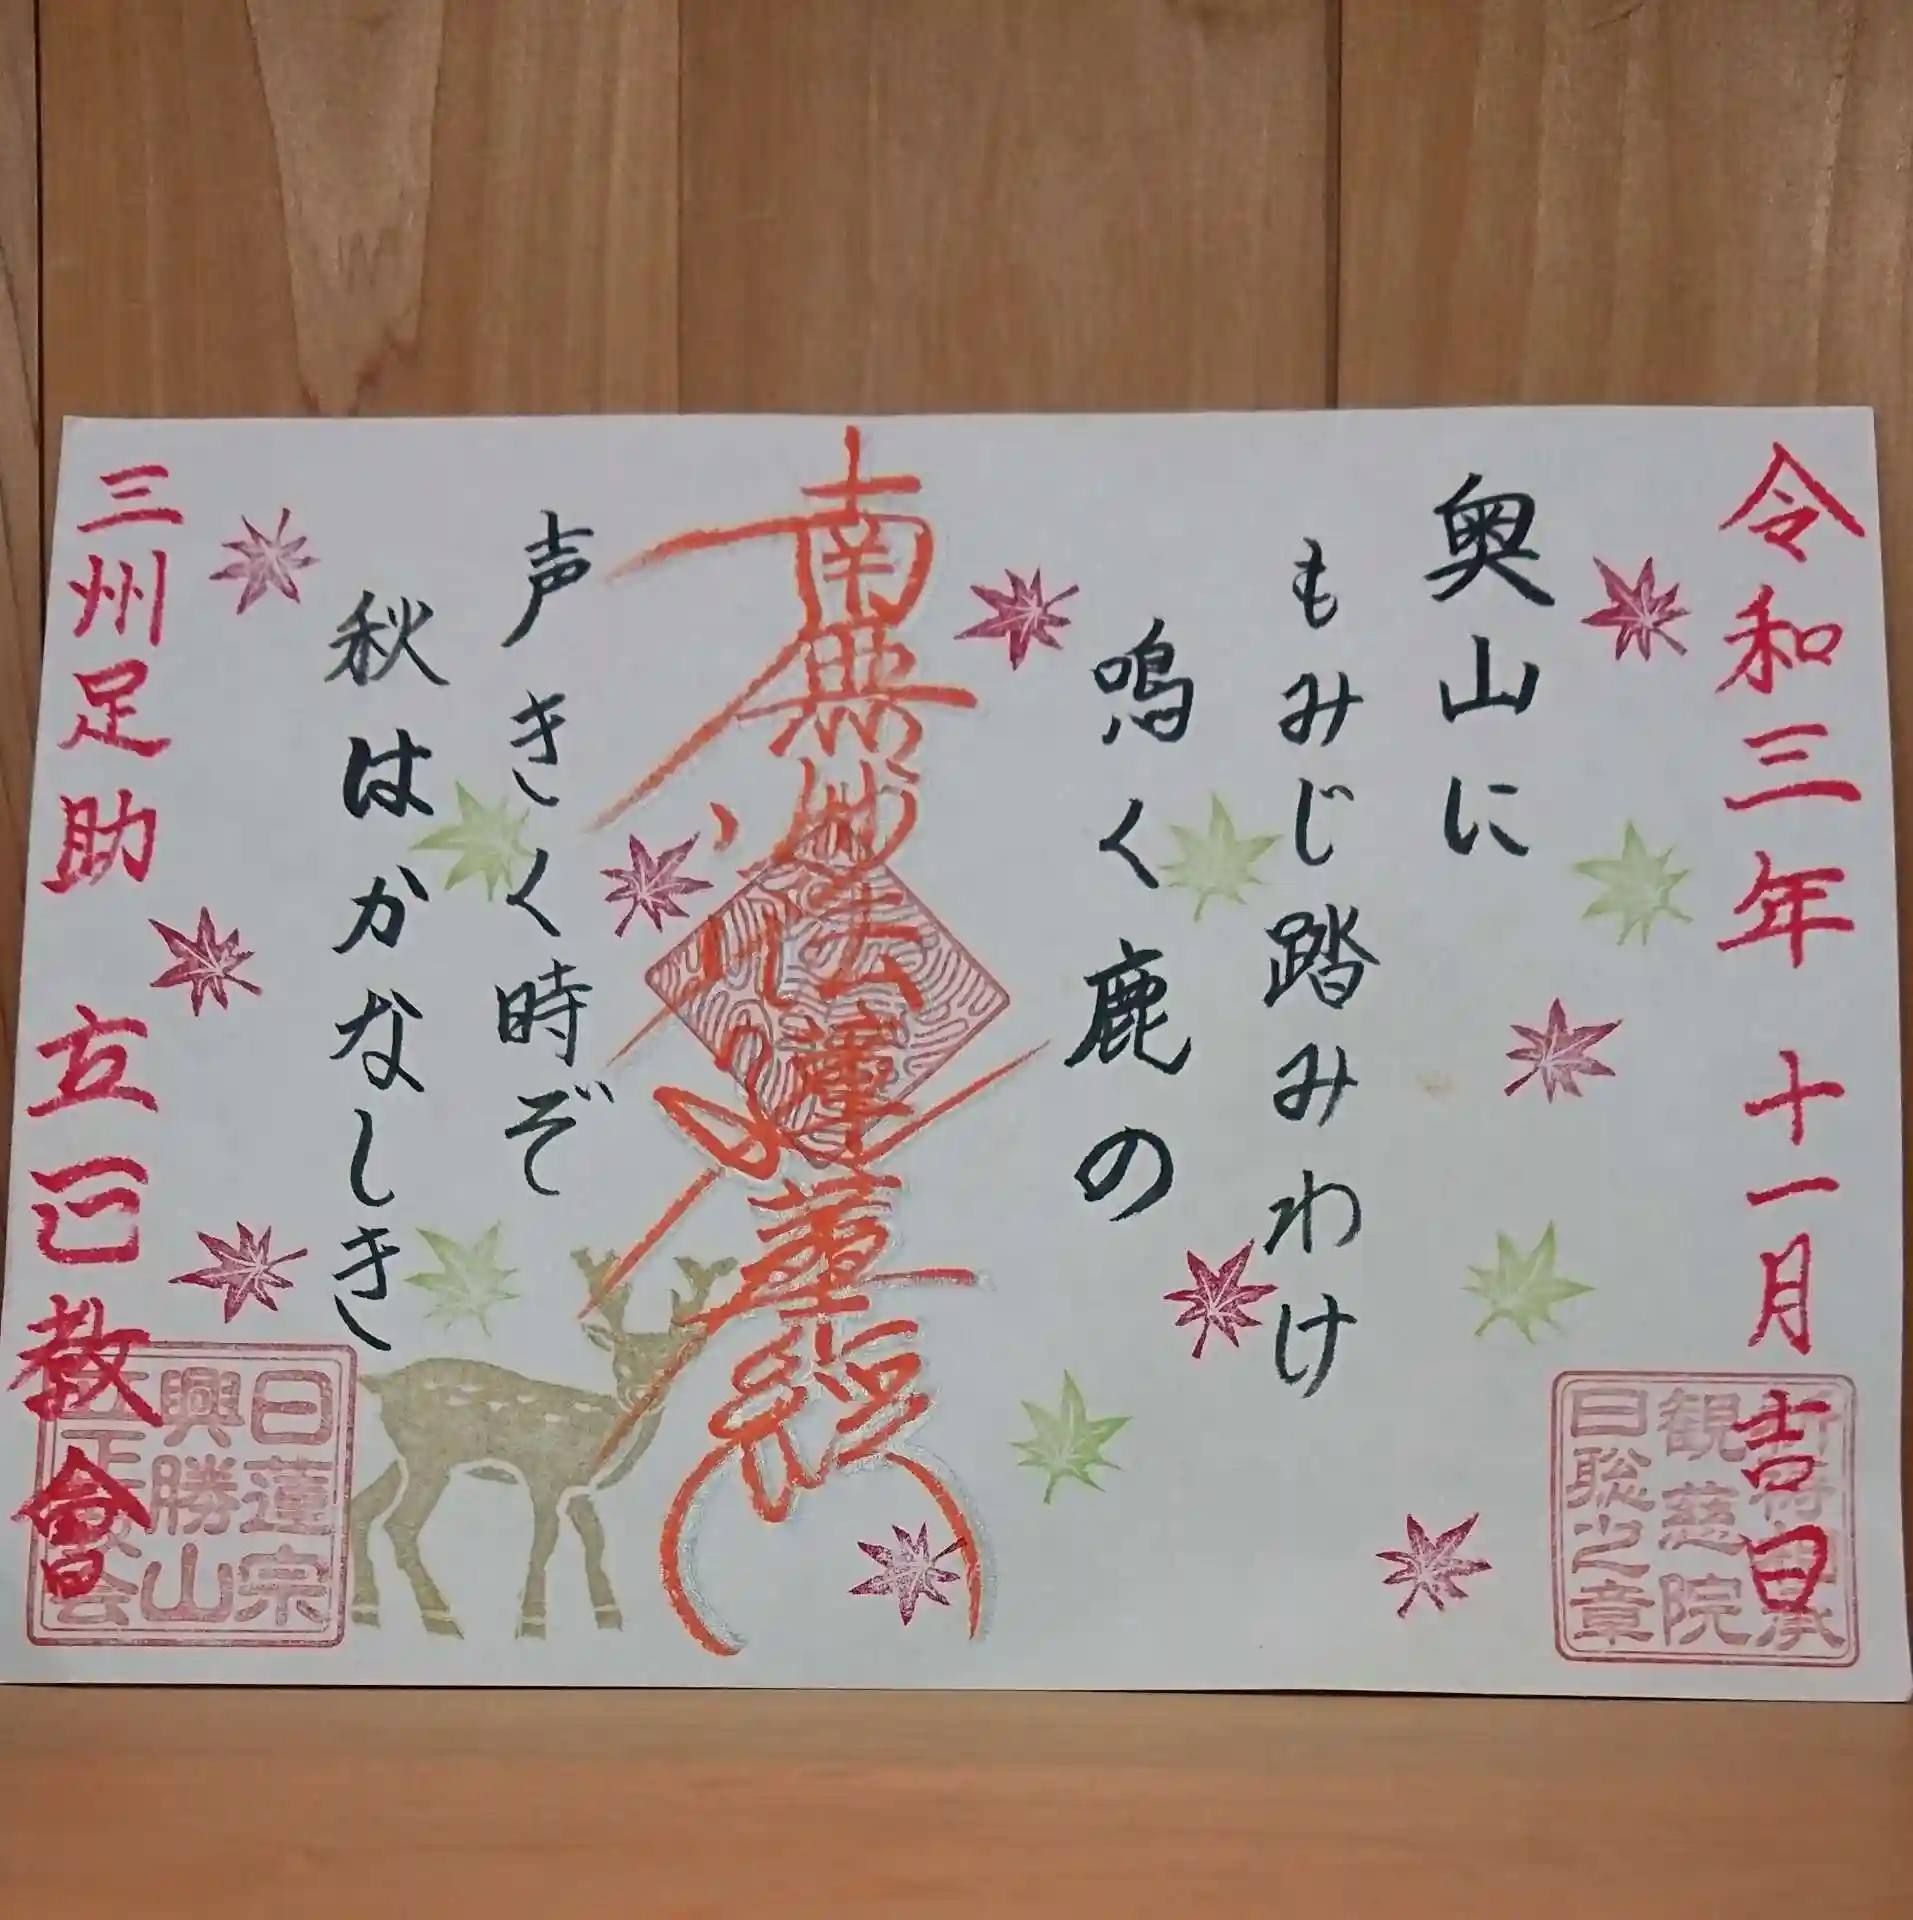 令和三年 十一月 吉日
奥山に
もみじ踏みわけ
鳴く鹿の
南無妙法蓮華経
声きく時ぞ
秋はかなしき
三州足助 立正教會
観慈院
日聡之章
日蓮宗
興勝山
立正教会